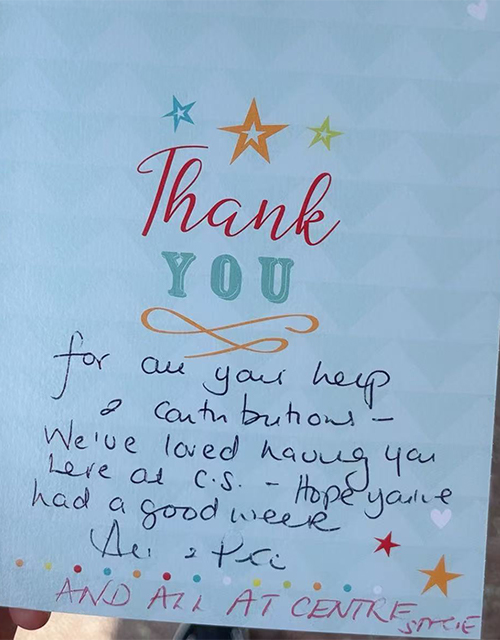 Thank
YOU
for all your help
& contributions -
We've loved having you
here at C.S. - Hope you've
had a good week
&
AND ALL AT CENTRE STAGE